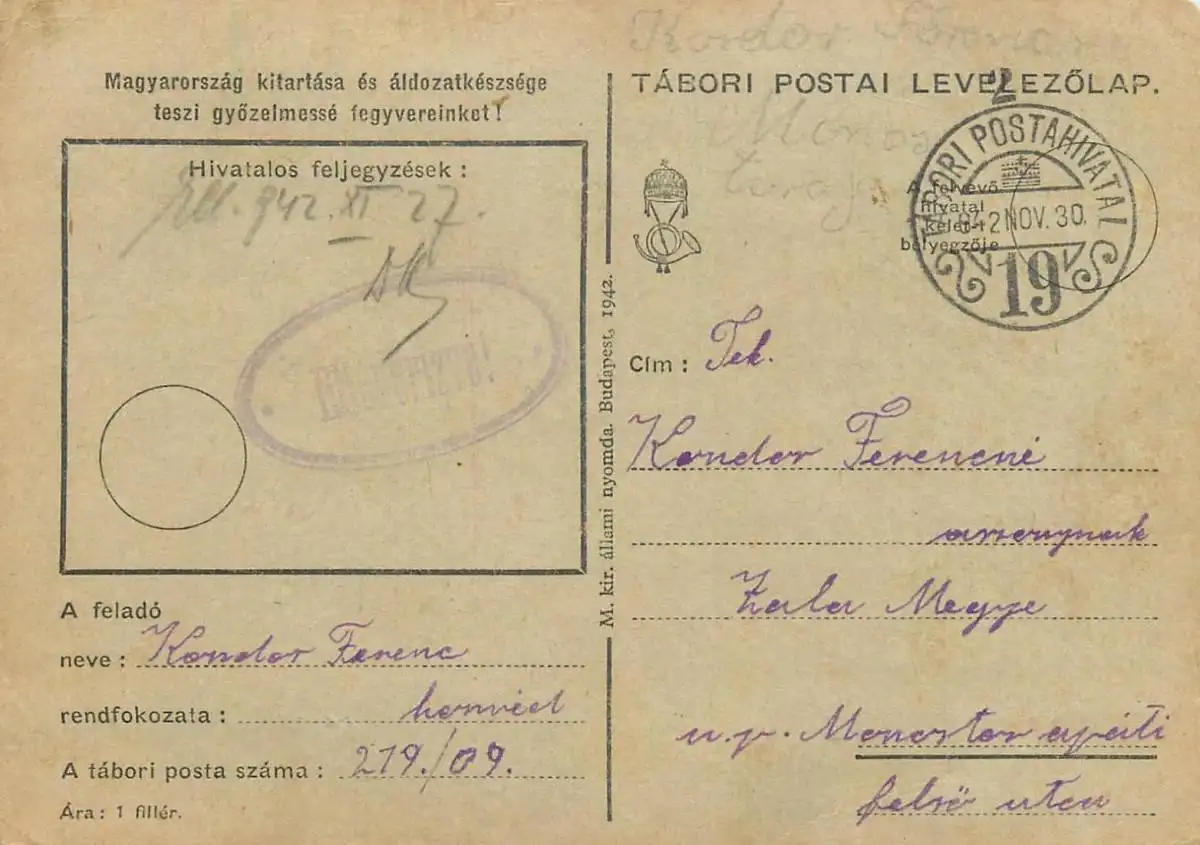 Magyarország kitartása és áldozatkészsége
teszi győzelmessé fegyvereinket!
Hivatalos feljegyzések :
942. XI 27.
A feladó
neve : Kondor Ferenc
rendfokozata : honvéd
A tábori posta száma : 219./09.
Ára : 1 fillér.
M. kir. állami nyomda. Budapest, 1942.
Kondor
TÁBORI POSTAI LEVELEZŐLAP.
TÁBORI POSTAHIVATAL
942 NOV. 30.
19
A felvevő
hivatal
keleti
bélyegzője
Cím : Tek.
Kondor Ferencné
asszonynak
Zala Megye
u. p. Monostor apáti
felső utca